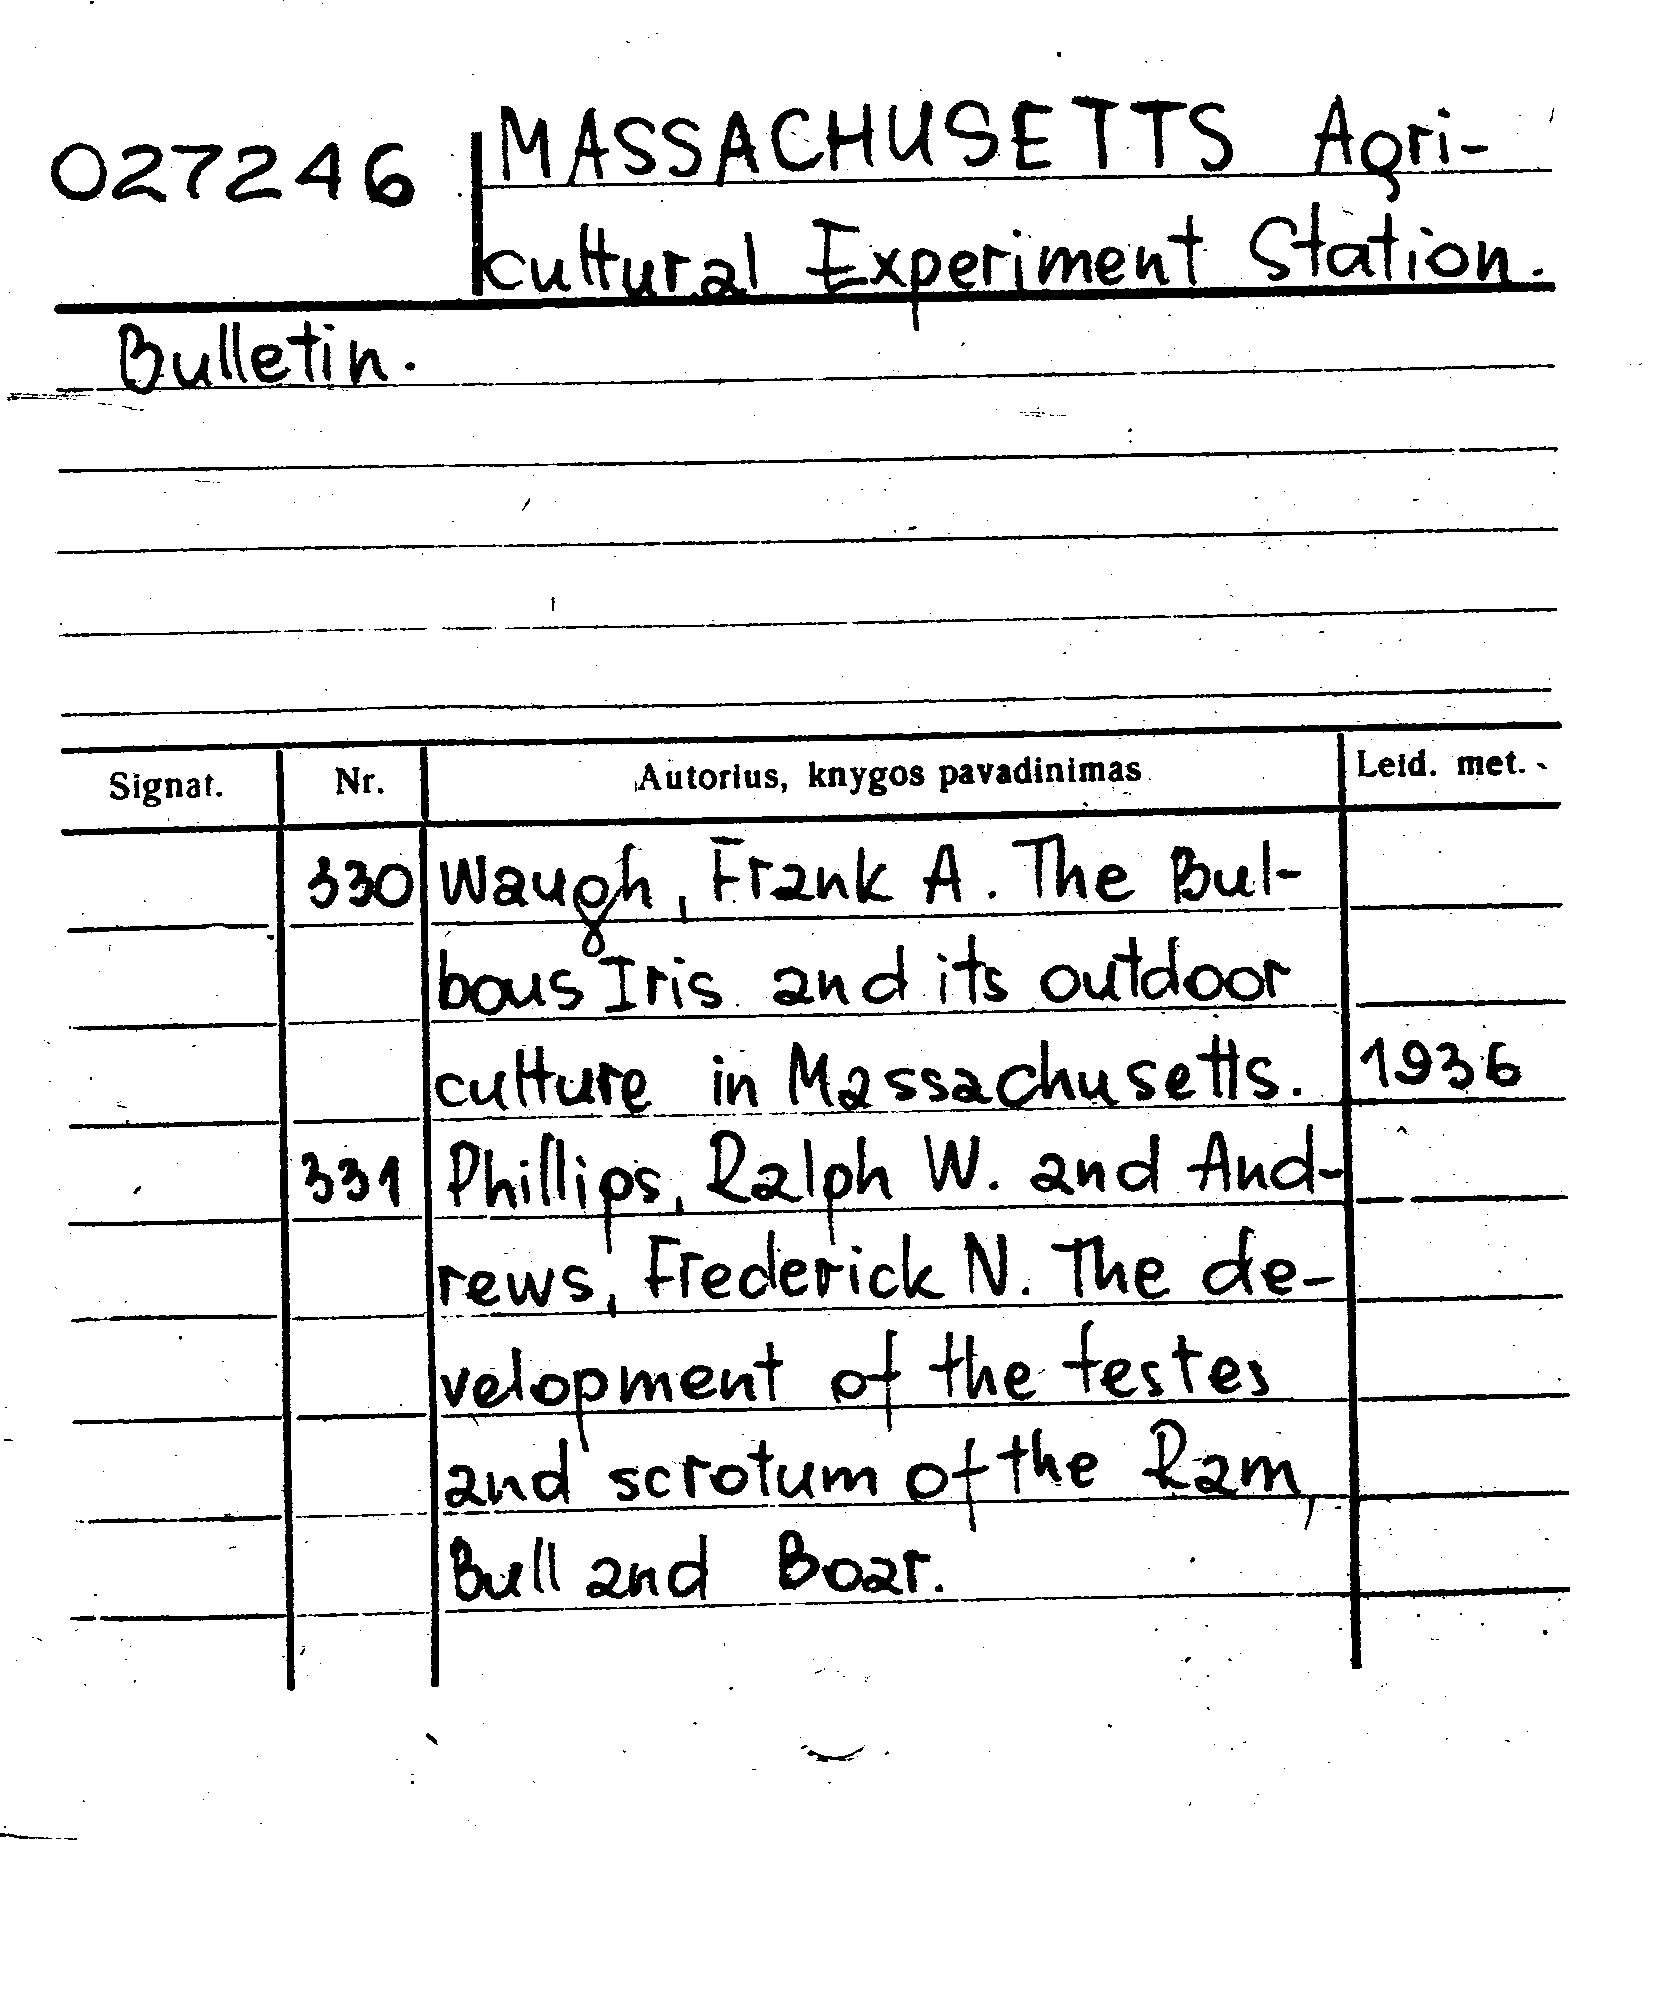 027246 MASSACHUSETTS Agri-
cultural Experiment Station.
Bulletin.
Signat. Nr. Autorius, knygos pavadinimas Leid. met.
330 Waugh, Frank A. The Bul-
bous Iris and its outdoor
culture in Massachusetts. 1936
331 Phillips, Ralph W. and And-
rews, Frederick N. The de-
velopment of the testes
and scrotum of the Ram,
Bull and Boar.